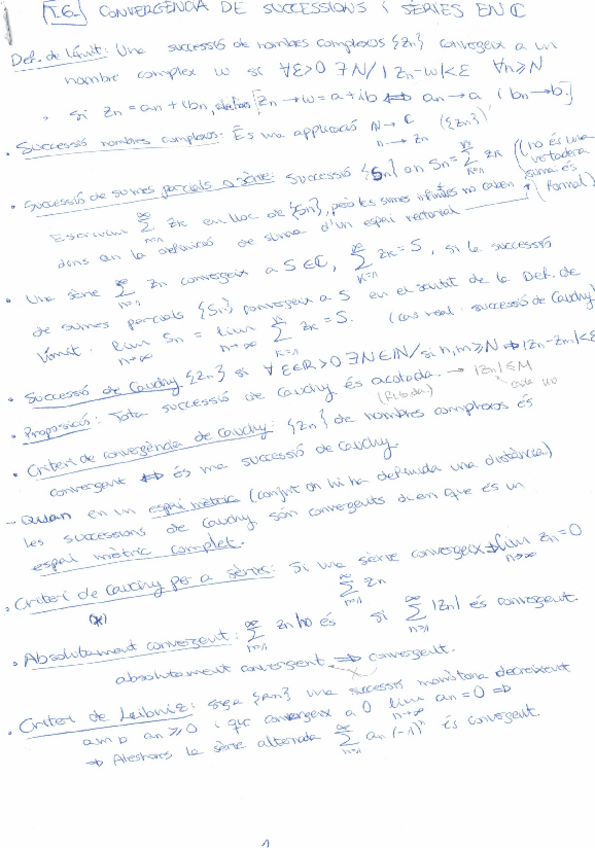 T.6.- CONVERGÈNCIA DE SUCCESSIONS i SÈRIES EN ℂ
Def. de límit: Una successió de nombres complexos {Zn} convergeix a un
nombre complex w si ∀ε>0 ∃N / |Zn-w|<ε ∀n≥N
· Si Zn = an + ibn, [Zn → w = a+ib ⟺ an → a i bn → b.]
· Successió nombres complexos: És una aplicació N → ℂ ({Zn})
n → Zn
· Successió de sumes parcials o sèrie: Successió {Sn} on Sn = Σ_{k=1}^{n} Zk (no és una
vertadera
suma és
formal)
Escrivim Σ_{n=1}^{∞} Zk en lloc de {Sn}, però les sumes infinites no caben
dons en la definició de suma d'un espai vectorial
· Una sèrie Σ_{n=1}^{∞} Zn convergeix a S∈ℂ, Σ_{k=1}^{∞} Zk = S, si la successió
de sumes parcials {Sn} convergeix a S en el sentit de la Def. de
límit. lim_{n→∞} Sn = lim_{n→∞} Σ_{k=1}^{n} Zk = S. (cas real: successió de Cauchy)
· Successió de Cauchy {Zn} si ∀ε∈R>0 ∃N∈ℕ / si n,m≥N ⇒ |Zn-Zm|<ε
· Proposició: Tota successió de Cauchy és acotada. → |Zn| ≤ M
(Fitada)
· Criteri de convergència de Cauchy: {Zn} de nombres complexos és
convergent ⟺ és una successió de Cauchy.
- Quan en un espai mètric (conjut on hi ha definida una distància)
les successions de Cauchy són convergents diem que és un
espai mètric complet.
· Criteri de Cauchy per a sèries: Si una sèrie convergeix ⇒ lim_{n→∞} Zn = 0
(*) Σ_{n=1}^{∞} Zn
· Absolutament convergent: Σ_{n=1}^{∞} Zn ho és si Σ_{n=1}^{∞} |Zn| és convergent.
absolutament convergent ⇒ convergent.
· Criteri de Leibniz: Sigui {an} una successió monòtona decreixent
amb an ≥ 0 i que convergeix a 0 lim_{n→∞} an = 0 ⇒
⇒ Aleshores la sèrie alternada Σ_{n=1}^{∞} an (-1)^n és convergent.
1